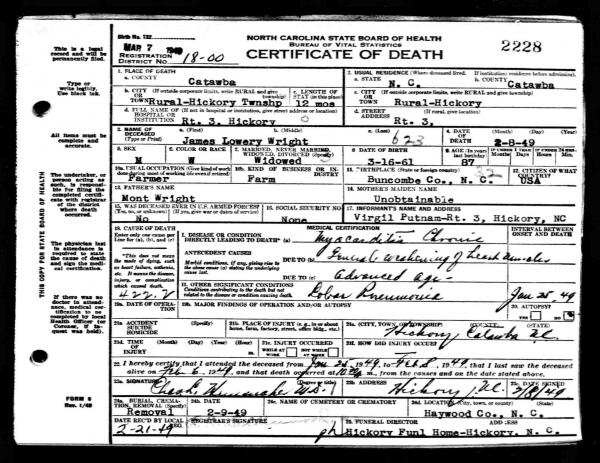 Birth No. 132
NORTH CAROLINA STATE BOARD OF HEALTH
BUREAU OF VITAL STATISTICS
CERTIFICATE OF DEATH
2228
MAR 7 1949
REGISTRATION DISTRICT NO. 18-00
This is a legal record and will be permanently filed.
Type or write legibly. Use black ink.
All items must be complete and accurate.
The undertaker, or person acting as such, is responsible for filing the completed certificate with registrar of the district where death occurred.
The physician last in attendance is required to state the cause of death and sign the medical certification.
If there was no doctor in attendance, medical certification to be completed by local Health Officer (or Coroner, if inquest was held).
THIS COPY FOR STATE BOARD OF HEALTH
FORM 8
Rev. 1/49
1. PLACE OF DEATH
a. COUNTY Catawba
2. USUAL RESIDENCE (Where deceased lived. If institution: residence before admission).
a. STATE N. C.
b. COUNTY Catawba
b. CITY OR TOWN (If outside corporate limits, write RURAL and give township) Rural-Hickory Twnshp
c. LENGTH OF STAY (in this place) 12 mos
c. CITY OR TOWN (If outside corporate limits, write RURAL and give township) Rural-Hickory
d. FULL NAME OF HOSPITAL OR INSTITUTION Rt. 3, Hickory
d. STREET ADDRESS (If rural, give location) Rt. 3,
3. NAME OF DECEASED (Type or Print)
a. (First) b. (Middle) c. (Last)
James Lowery Wright
623
4. DATE OF DEATH (Month) (Day) (Year) 2-8-49
5. SEX M
6. COLOR OR RACE W
7. MARRIED, NEVER MARRIED, WIDOWED, DIVORCED (Specify) Widowed
8. DATE OF BIRTH 3-16-61
9. AGE (In years last birthday) 87
10a. USUAL OCCUPATION (Give kind of work done during most of working life, even if retired) Farmer
10b. KIND OF BUSINESS OR INDUSTRY Farm
11. BIRTHPLACE (State or foreign country) Buncombe Co., N. C.
12. CITIZEN OF WHAT COUNTRY? USA
13. FATHER'S NAME Mont Wright
14. MOTHER'S MAIDEN NAME Unobtainable
15. WAS DECEASED EVER IN U.S. ARMED FORCES? (Yes, no, or unknown) (If yes, give war or dates of service) No
16. SOCIAL SECURITY NO. None
17. INFORMANT'S NAME AND ADDRESS Virgil Putnam-Rt. 3, Hickory, NC
18. CAUSE OF DEATH
Enter only one cause per line for (a), (b), and (c)
*This does not mean the mode of dying, such as heart failure, asthenia, etc. It means the disease, injury, or complication which caused death.
422.2
MEDICAL CERTIFICATION
INTERVAL BETWEEN ONSET AND DEATH
I. DISEASE OR CONDITION DIRECTLY LEADING TO DEATH* (a) Myocarditis Chronic
ANTECEDENT CAUSES
Morbid conditions, if any, giving rise to the above cause (a) stating the underlying cause last.
DUE TO (b) General weakening of heart muscles
DUE TO (c) advanced age
II. OTHER SIGNIFICANT CONDITIONS
Conditions contributing to the death but not related to the disease or condition causing death.
Lobar Pneumonia Jan 25 49
19a. DATE OF OPERATION
19b. MAJOR FINDINGS OF OPERATION AND/OR AUTOPSY
20. AUTOPSY? YES NO
21a. ACCIDENT SUICIDE HOMICIDE
21b. PLACE OF INJURY (e.g., in or about home, farm, factory, street, office bldg., etc.)
21c. (CITY, OR TOWNSHIP) (COUNTY) (STATE)
Hickory, Catawba N.C.
21d. TIME OF INJURY (Month) (Day) (Year) (Hour)
21e. INJURY OCCURRED WHILE AT WORK NOT WHILE AT WORK
21f. HOW DID INJURY OCCUR?
22. I hereby certify that I attended the deceased from Jan 25, 1949, to Feb 8, 1949, that I last saw the deceased
alive on Feb 6, 1949, and that death occurred at m., from the causes and on the date stated above.
23a. SIGNATURE (Degree or title) M.D.
23b. ADDRESS Hickory, N.C.
23c. DATE SIGNED 2/8/49
24a. BURIAL, CREMATION, REMOVAL (Specify) Removal
24b. DATE 2-9-49
24c. NAME OF CEMETERY OR CREMATORY
24d. LOCATION (City, town, or county) (State) Haywood Co., N. C.
DATE REC'D BY LOCAL REG. 2-21-49
REGISTRAR'S SIGNATURE
25. FUNERAL DIRECTOR ADDRESS
Hickory Funl Home-Hickory, N. C.